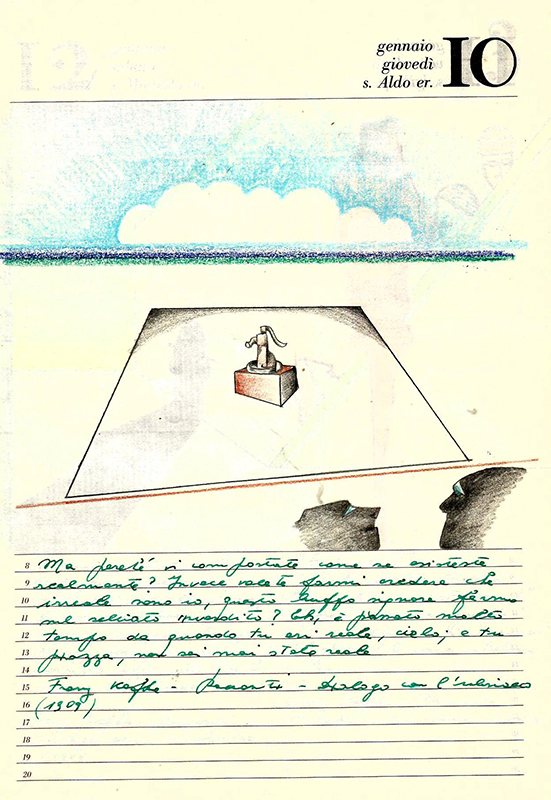 gennaio
giovedì
s. Aldo er.
10
8 Ma perché vi comportate come se esisteste
9 realmente? Invece volete farmi credere che
10 irreale sono io, questo buffo signore fermo
11 sul selciato inverdito? Eh, è passato molto
12 tempo da quando tu eri reale, cielo; e tu
13 piazza, non sei mai stata reale
14
15 Franz Kafka - Racconti - Dialogo con l'ubriaco
16 (1909)
17
18
19
20